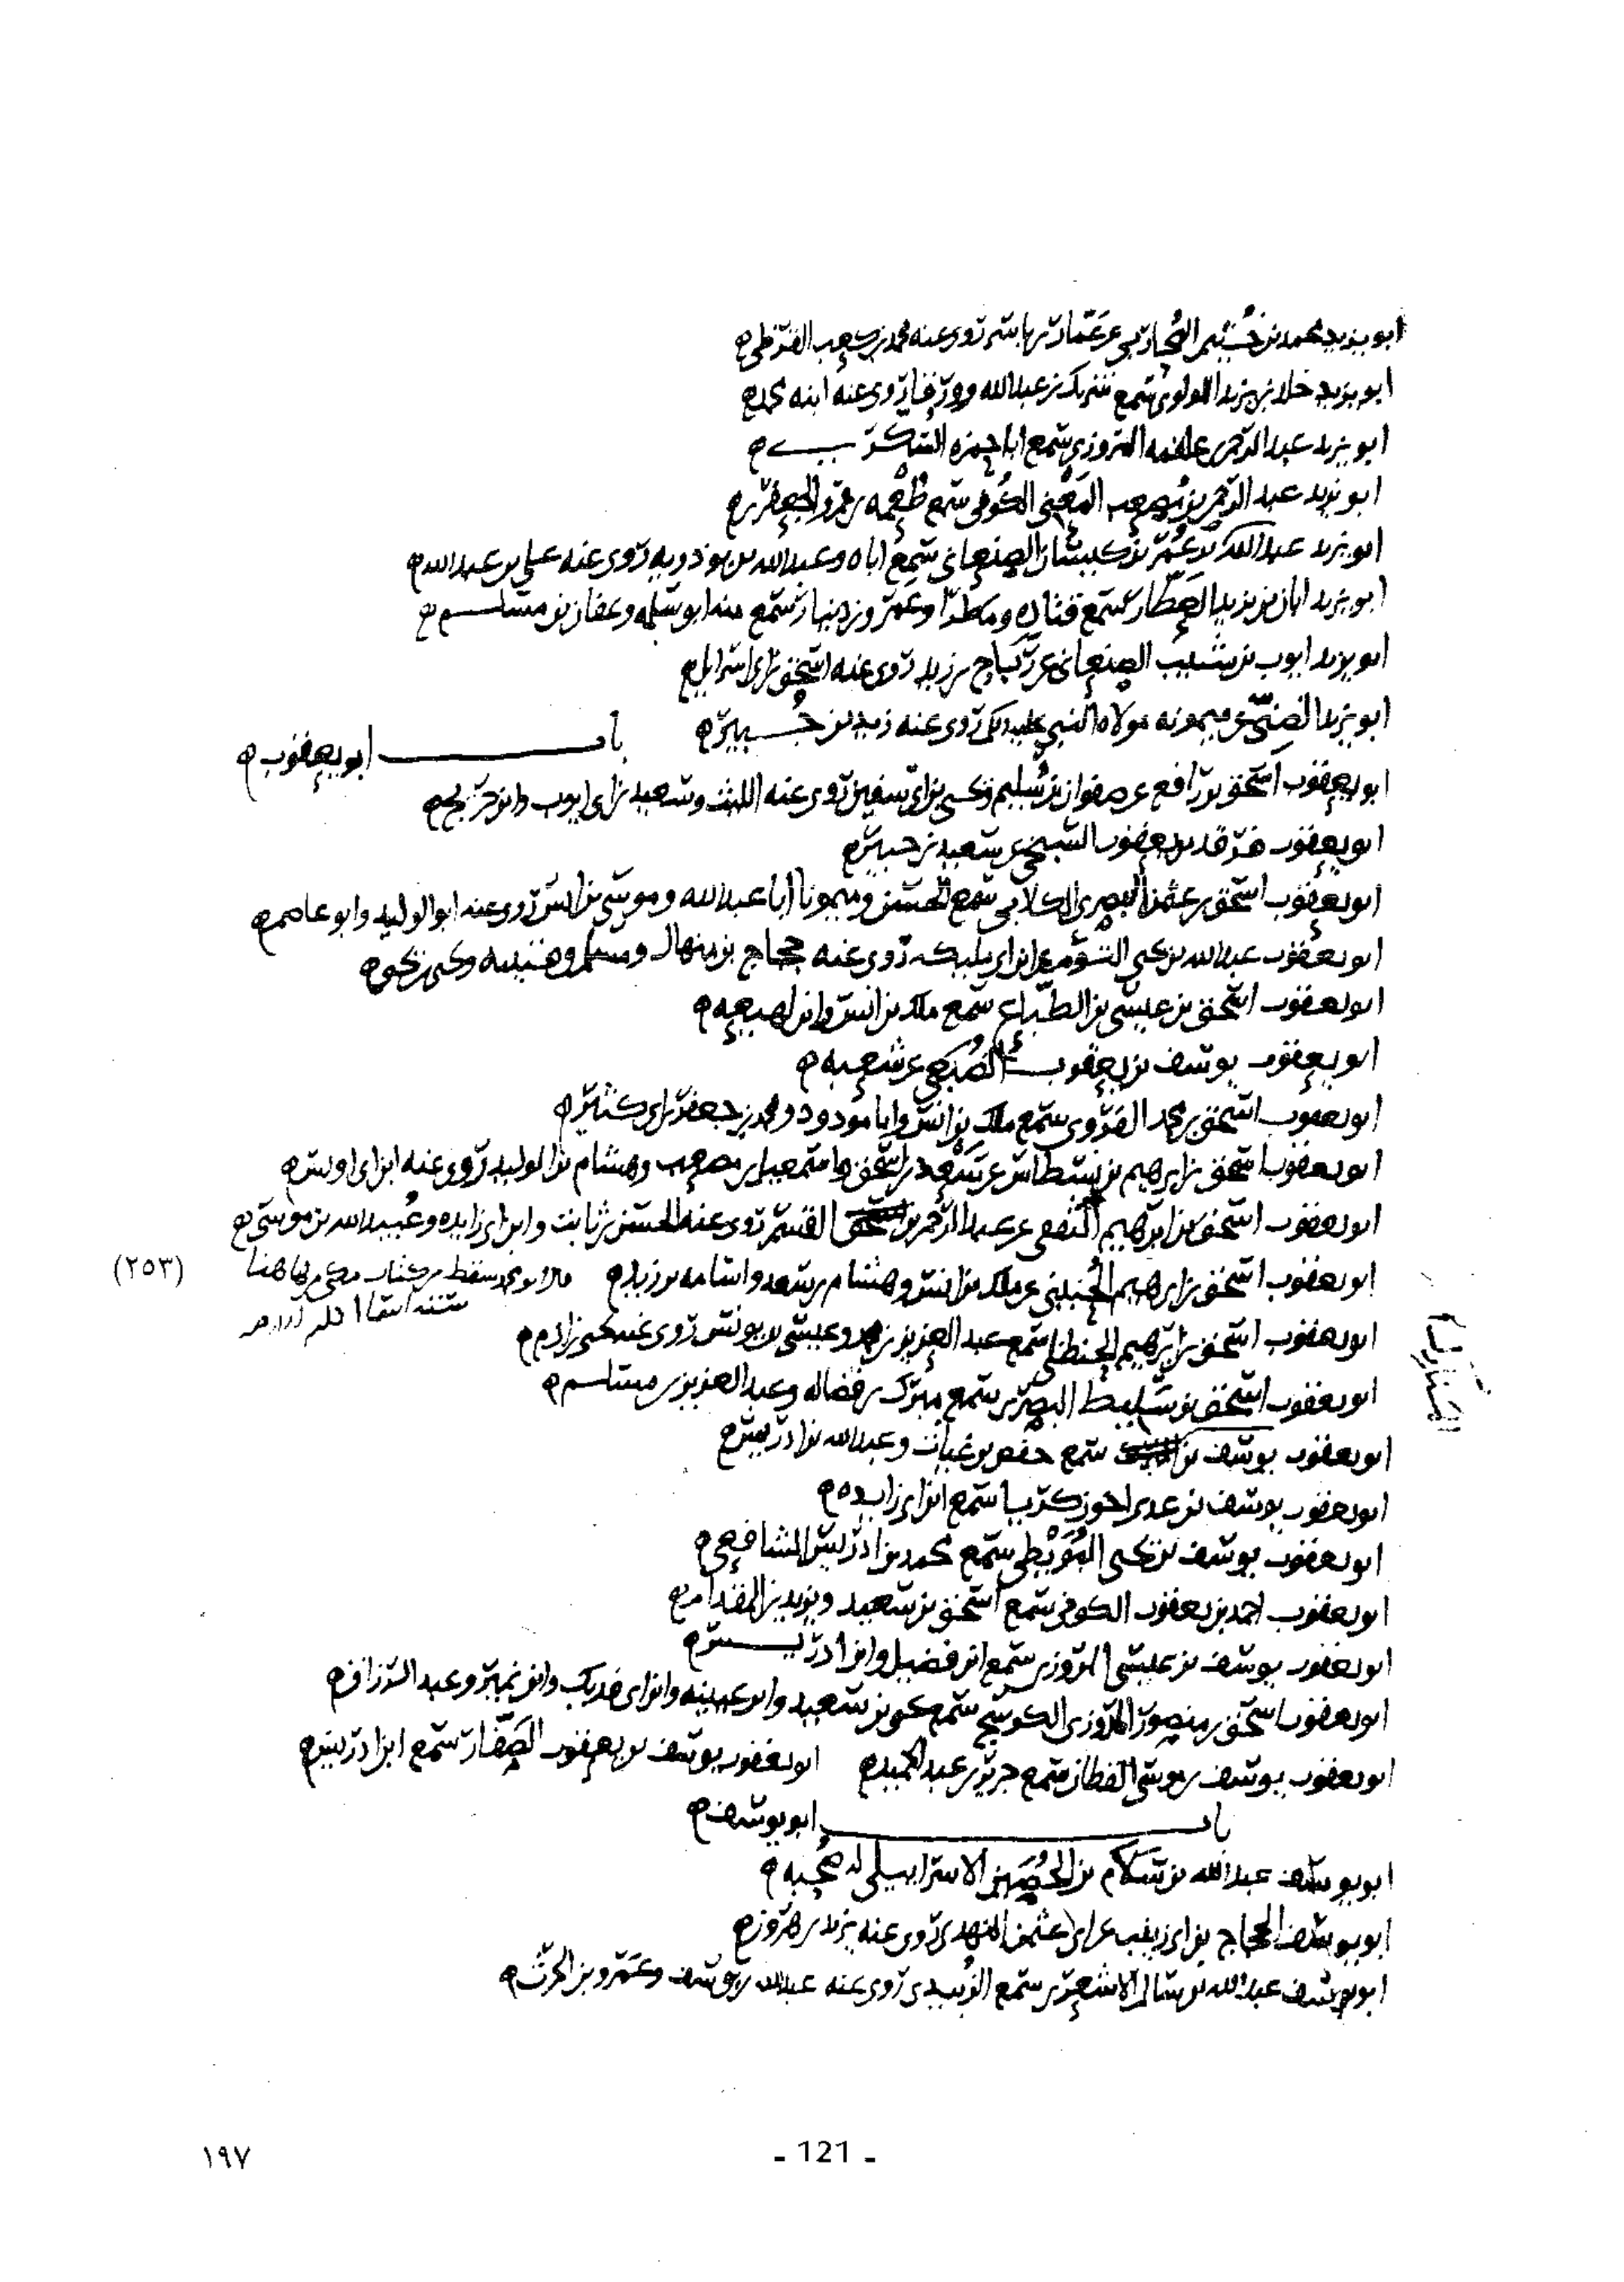 ابو يزيد محمد بن خثيم المحاربي عن عمار بن ياسر روى عنه محمد بن كعب القرظي
ابو يزيد خلاد بن يزيد اللولوي سمع شريك بن عبد الله روى عنه ابنه محمد
ابو يزيد عبد الرحمن علقمه المروزي سمع ابا حمزه السكري
ابو يزيد عبد الرحمن بن مصعب المعني الكوفي سمع طعمه بن عمرو الجعفري
ابو يزيد عبد الملك بن عمر بن كيسان الصنعاني سمع اباه وعبد الله بن بوذويه روى عنه علي بن عبد الله
ابو يزيد ابان بن يزيد العطار سمع قتاده ومطرا وعمرو بن دينار سمع منه ابو سلمه وعفان بن مسلم
ابو يزيد ايوب بن شبيب الصنعاني عن رباح بن زيد روى عنه اسحق بن ابي اسرايل
ابو يزيد الضني عن ميمونه مولاه النبي عليه السلم روى عنه زيد بن جبير
باب ابو يعقوب
ابو يعقوب اسحق بن رافع عن صفوان بن سليم ويحيى بن ابي سفين روى عنه الليث وسعيد بن ابي ايوب وابن جريج
ابو يعقوب فرقد بن يعقوب السبخي عن سعيد بن جبير
ابو يعقوب اسحق بن عثمن البصري الكلابي سمع الحسن وميمونا ابا عبد الله وموسى بن انس روى عنه ابو الوليد وابو عاصم
ابو يعقوب عبد الله بن يحيى التوءم عن ابن ابي مليكه روى عنه حجاج بن منهال ومسلم وقتيبه ويحيى بن يحيى
ابو يعقوب اسحق بن عيسى بن الطباع سمع ملك بن انس وابن لهيعه
ابو يعقوب يوسف بن يعقوب الضبعي عن شعبه
ابو يعقوب اسحق بن محمد الفروي سمع ملك بن انس وابا مودود ومحمد بن جعفر بن ابي كثير
ابو يعقوب اسحق بن ابرهيم بن نسطاس عن سعد بن اسحق واسمعيل بن مصعب وهشام بن الوليد روى عنه ابن ابي اويس
ابو يعقوب اسحق بن ابرهيم الثقفي عن عبد الرحمن بن القسم روى عنه الحسن بن ثابت وابن ابي زايده وعبيد الله بن موسى
ابو يعقوب اسحق بن ابرهيم الحنيني عن ملك بن انس وهشام بن سعد واسامه بن زيد
قال ابو محمد سقط من كتاب مكي من هاهنا
(٢٥٣)
ابو يعقوب اسحق بن ابرهيم الحنظلي سمع عبد العزيز بن محمد وعيسى بن يونس روى عنه يحيى بن ادم
ابو يعقوب اسحق بن سليط البصري سمع مبرك بن فضاله وعبد العزيز بن مسلم
ابو يعقوب يوسف بن سمع حفص بن غياث وعبد الله بن ادريس
ابو يعقوب يوسف بن عدي اخو زكريا سمع ابن ابي زايده
ابو يعقوب يوسف بن يحيى البويطي سمع محمد بن ادريس الشافعي
ابو يعقوب احمد بن يعقوب الكوفي سمع اسحق بن سعيد ويزيد بن المقدام
ابو يعقوب يوسف بن عيسى المروزي سمع ابن فضيل وابن ادريس
ابو يعقوب اسحق بن منصور المروزي الكوسج سمع يحيى بن سعيد وابن عيينه وابن ابي فديك وابن نمير وعبد الرزاق
ابو يعقوب يوسف بن موسى القطان سمع جرير بن عبد الحميد ابو يعقوب يوسف بن يعقوب الصفار سمع ابن ادريس
باب ابو يوسف
ابو يوسف عبد الله بن سلام بن الحصين الاسرايلي له صحبه
ابو يوسف الحجاج بن ابي زينب عن ابي عثمن النهدي روى عنه يزيد بن هرون
ابو يوسف عبد الله بن سالم الاشعري سمع الزبيدي روى عنه عبد الله بن يوسف وعمرو بن الحرث
- 121 -
١٩٧